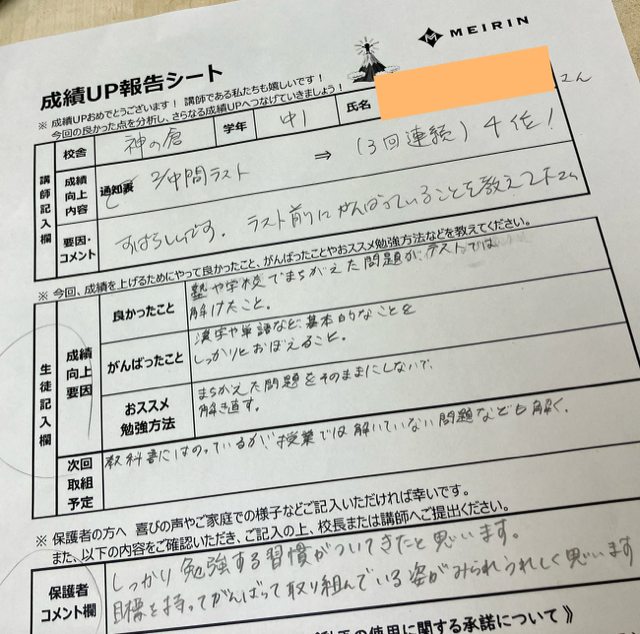 MEIRIN
成績UP報告シート
※ 成績UPおめでとうございます！ 講師である私たちも嬉しいです！
今回の良かった点を分析し、さらなる成績UPへつなげていきましょう！
校舎 神の倉 学年 中1 氏名 さん
講師記入欄
成績向上内容 通知表 中間テスト ⇒ (3回連続) 4位！
要因・コメント すばらしいです。テスト前にがんばっていることを教えて下さい
※ 今回、成績を上げるためにやって良かったこと、がんばったことやおススメ勉強方法などを教えてください。
生徒記入欄
成績向上要因
良かったこと 塾や学校でまちがえた問題がテストでは
解けたこと。
がんばったこと 漢字や単語など、基本的なことを
しっかりとおぼえること。
おススメ勉強方法 まちがえた問題をそのままにしないで、
解き直す。
次回取組予定 教科書にはのっているが、授業では解いていない問題なども解く。
※ 保護者の方へ 喜びの声やご家庭での様子などご記入いただければ幸いです。
また、以下の内容をご確認いただき、ご記入の上、校長または講師へご提出ください。
保護者コメント欄 しっかり勉強する習慣がついてきたと思います。
目標を持ってがんばって取り組んでいる姿がみられうれしく思います
の使用に関する承諾について 》